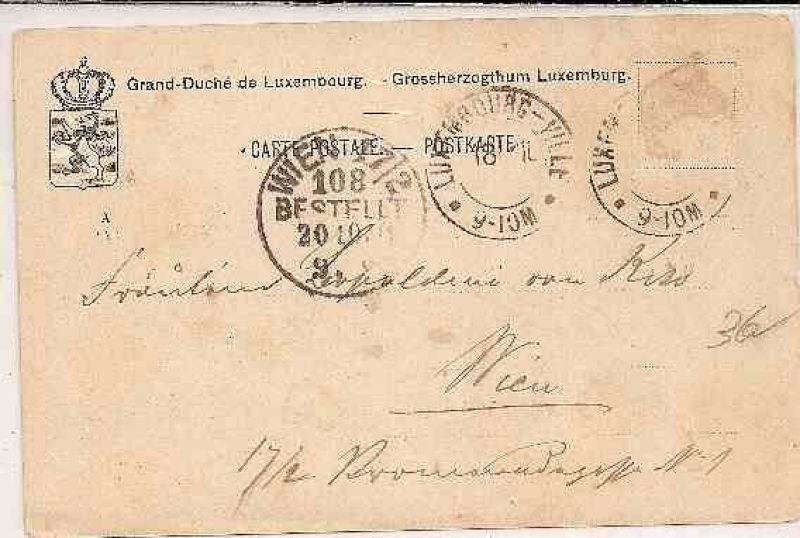 Grand-Duché de Luxembourg. - Grossherzogthum Luxemburg.
CARTE POSTALE. — POSTKARTE
WIEN 17/2
108
BESTELLT
20
LUXEMBOURG-VILLE
18
9-10M
LUXE
9-10M
Fräulein Leopoldine von
Wien
36
17/2 Promenadegasse No 1